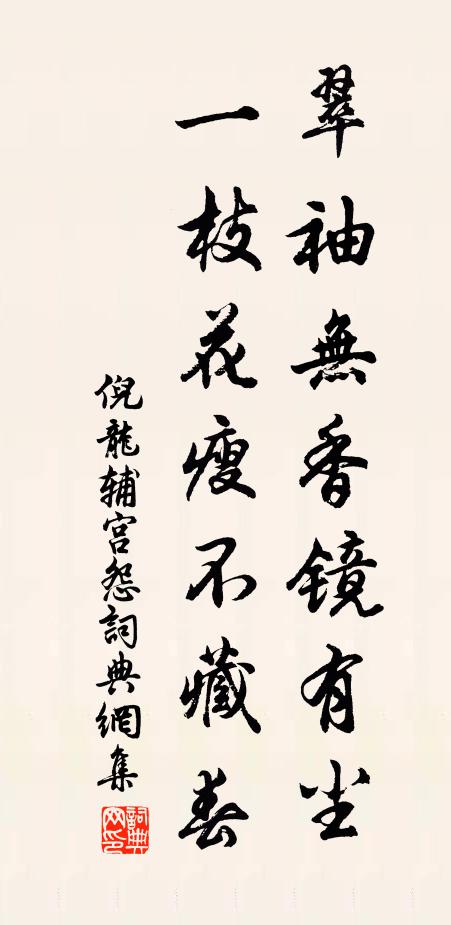 翠袖無香镜有尘
一枝花瘦不藏春
倪龍辅宫怨詞典網集
詞典網印